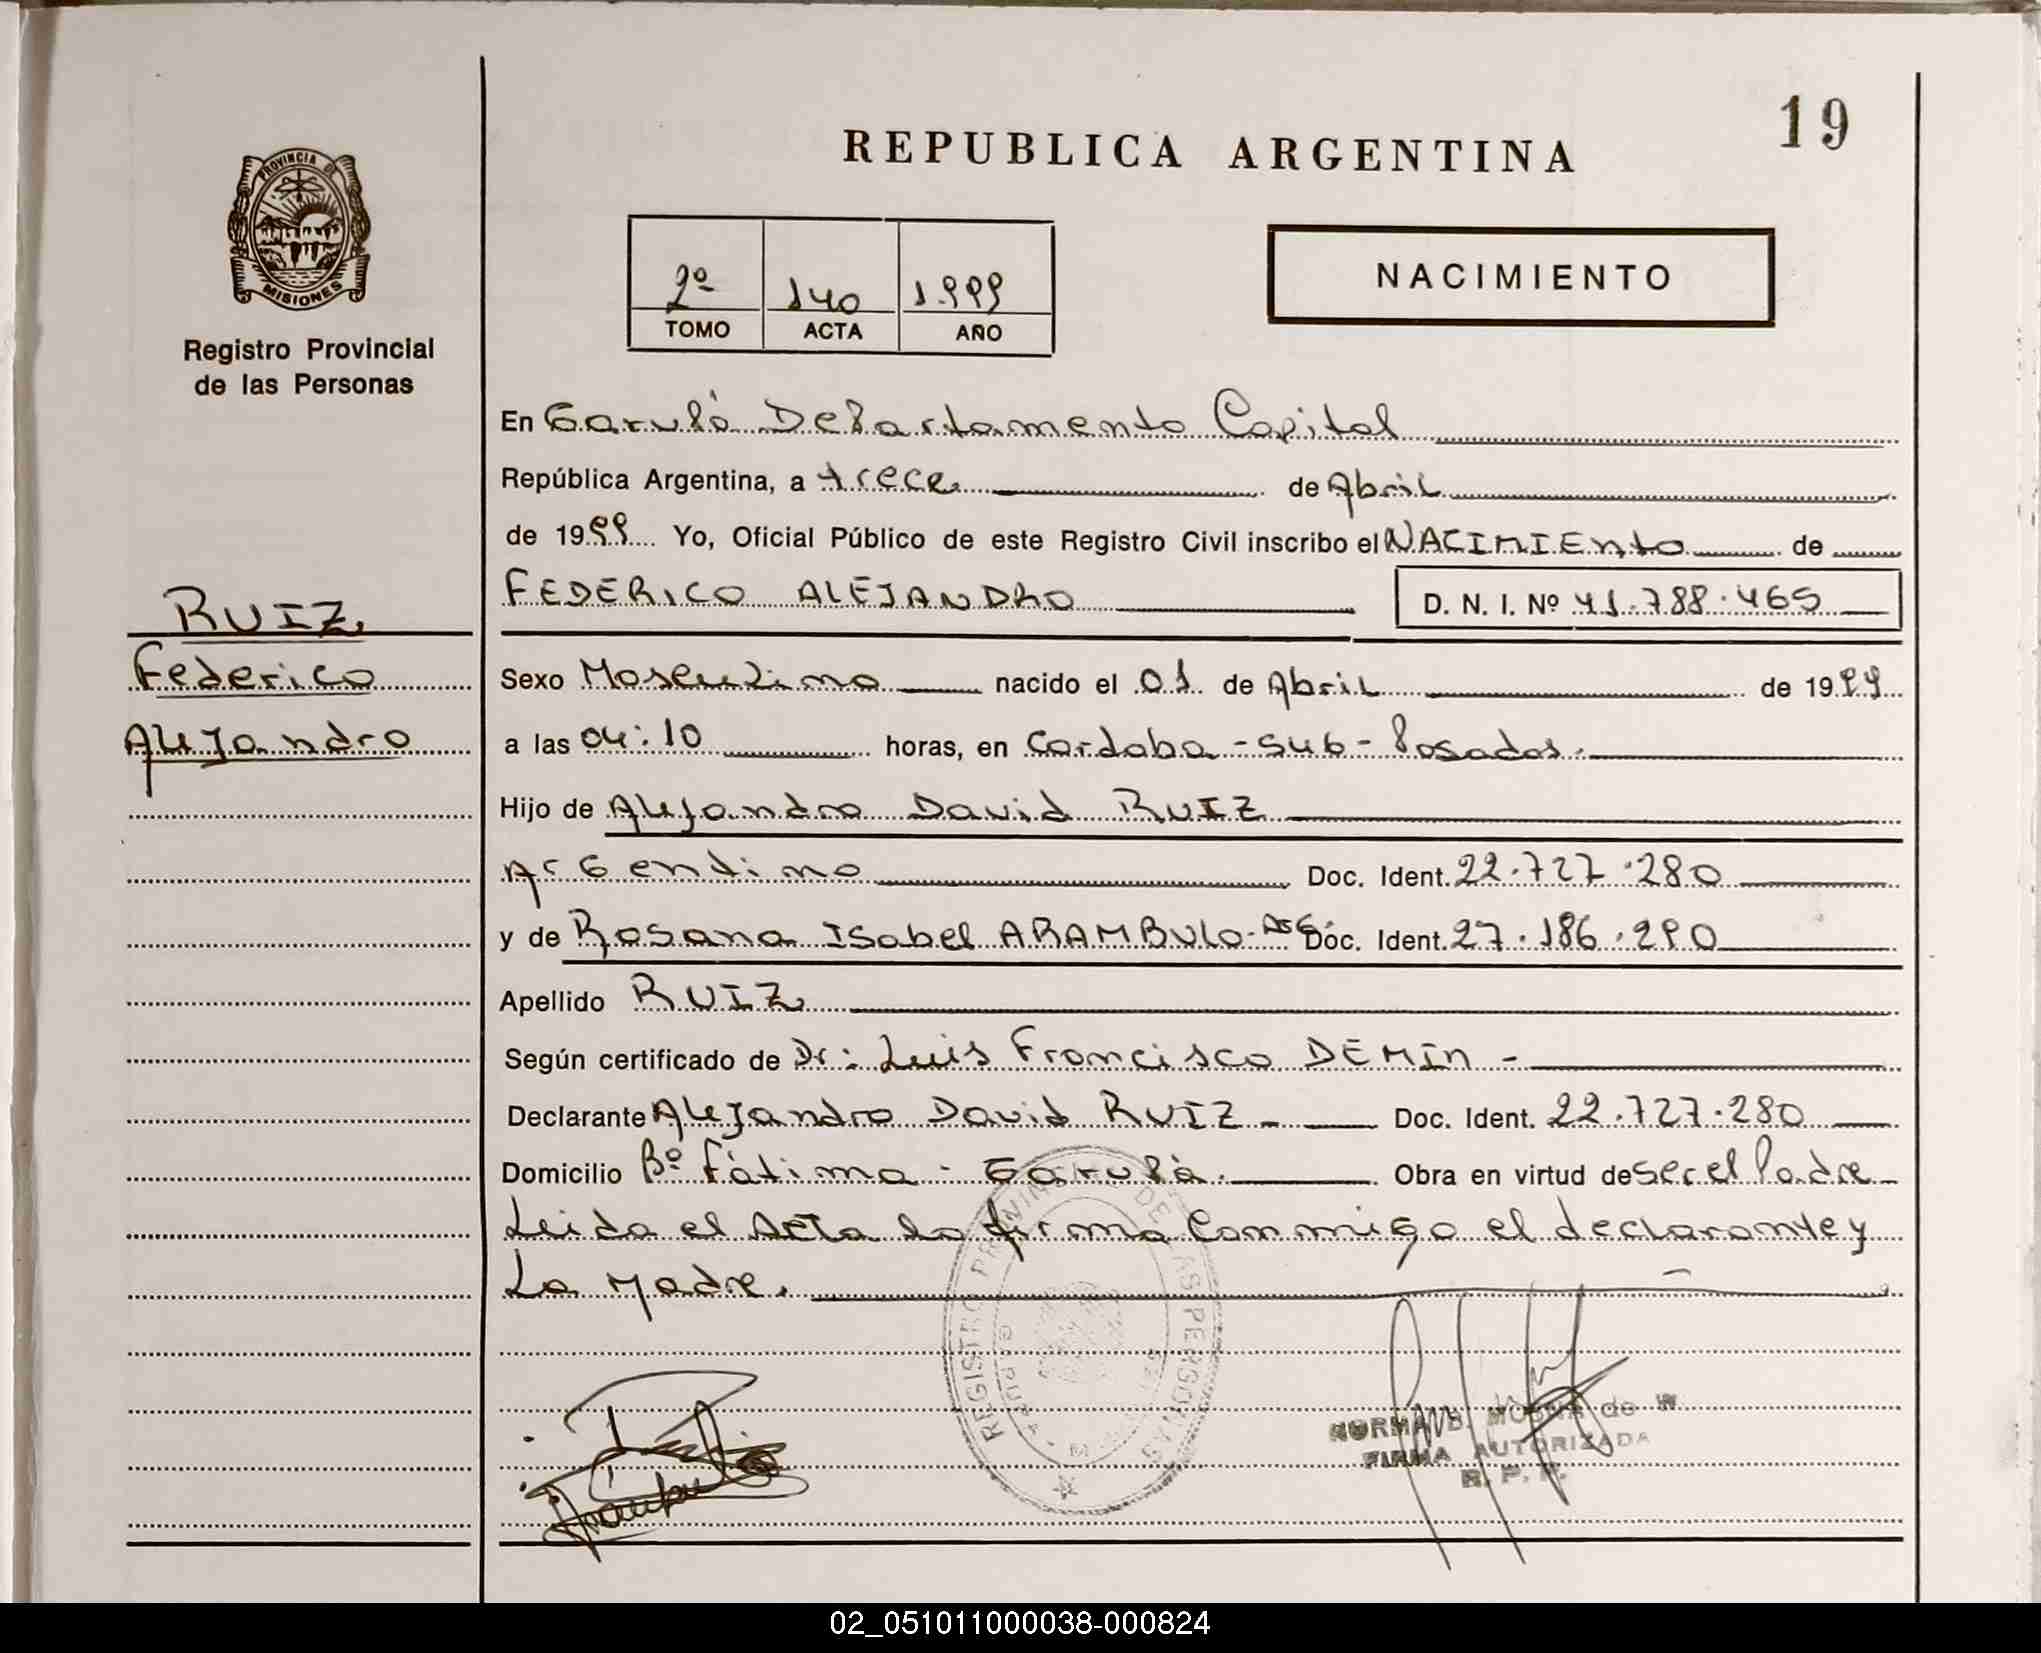 19
REPUBLICA ARGENTINA
PROVINCIA DE
MISIONES
Registro Provincial
de las Personas
2º 140 1.999
TOMO ACTA AÑO
NACIMIENTO
En Garupá Departamento Capital
República Argentina, a trece de Abril
de 1999 Yo, Oficial Público de este Registro Civil inscribo el NACIMIENTO de
FEDERICO ALEJANDRO D. N. I. Nº 41.788.465
RUIZ
Federico
Alejandro
Sexo Masculino nacido el 01 de Abril de 1999
a las 04:10 horas, en Cordoba - Sub - Posadas.
Hijo de Alejandro David RUIZ
Argentino Doc. Ident. 22.727.280
y de Rosana Isabel ARAMBULO - Arg. Doc. Ident. 27.186.290
Apellido RUIZ
Según certificado de Dr: Luis Francisco DEMIN -
Declarante Alejandro David RUIZ - Doc. Ident. 22.727.280
Domicilio Bº Fátima - Garupá. Obra en virtud de ser el Padre
Leida el Acta la firma Conmigo el declarante y
La Madre.
REGISTRO PROVINCIAL DE LAS PERSONAS
GARUPA
NORMA B. de W.
FIRMA AUTORIZADA
R. P. P.
02_051011000038-000824